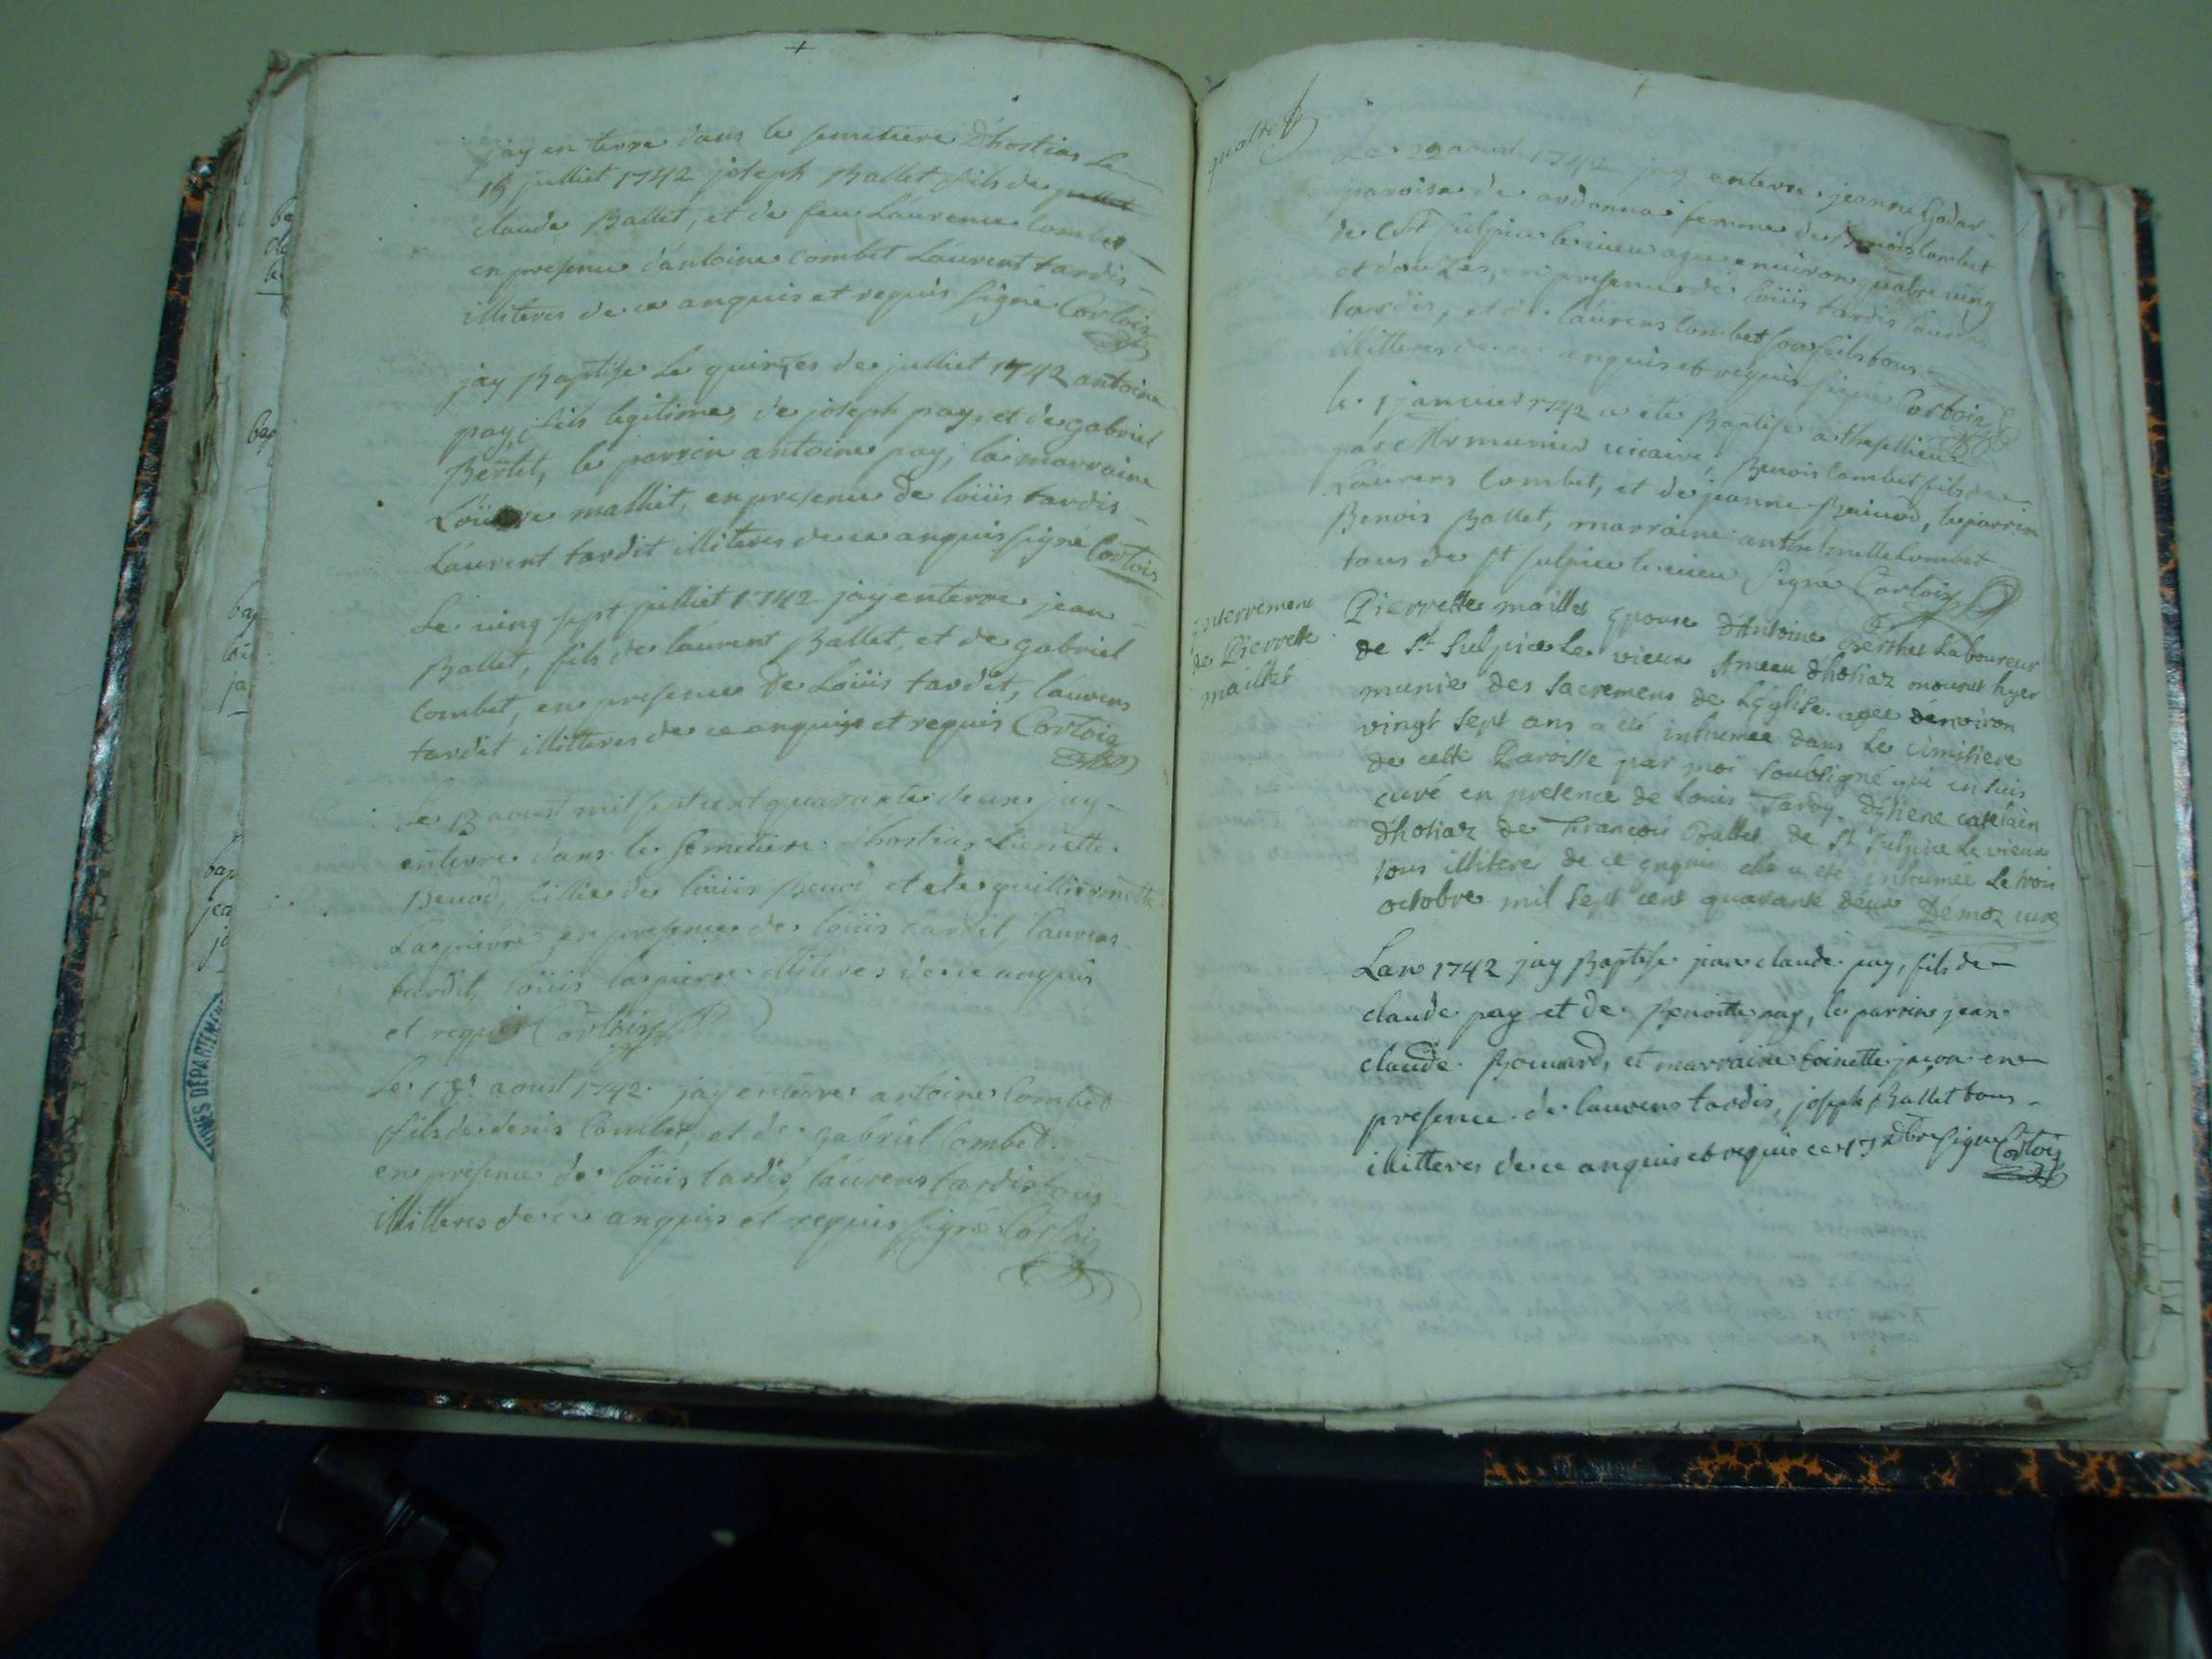 jay en terre dans le semetiere Dhostias Le
15 julliet 1742 joseph Ballet fils de
claude Ballet, et de feu Laurence Combet
en presence d'antoine Combet Laurent tardis
illiteres de ce anquis et requis signé Cortois
jay Baptise Le quinzes de julliet 1742 antoine
pay, fils legitime, de joseph pay, et de gabriel
Bertet, le parrin antoine pay, la marraine
malliet, en presence de loüis tardis
Laurent tardit illiteres de ce anquis signé Cortois
Le ving sept julliet 1742 jay enterre jean
Ballet, fils de laurent Ballet, et de gabriel
Combet, en presence de Loüis tardit, laurens
tardit illitteres de ce anquis et requis Cortois
Le 13 aoust mil sept cent quarante deux jay
enterre dans le semetiere dhostias
Benod, fillie de loüis Benod et de guilliermette
Lapierre en presence de loüis tardit, laurens
tardit, loüis lapierre illiteres de ce anquis
et requis Cortois
Le 18 aoust 1742 jay enterre antoine Combet
fils de denis Combet, et de gabriel Combet
en presence de loüis tardis, laurens tardis tous
illitteres de ce anquis et requis signé Cortois
Le 29 aoust 1742 jay enterre jeanne Godar
paroisse de ordonna femme de Benois Combet
de St sulpice le vieu agee environ quatre ving
et douzes, en presence de loüis tardis laurens
tardis, et de laurens Combet son fils tous
illitteres de ce anquis et requis signé Cortois
le 1 janvier 1742 a eté Baptise a thesillieu
par Mr munier vicaire, Benois Combet fils de
Laurens Combet, et de jeanne, le parrin
Benois Ballet, marraine anthelmette Combet
tous de St sulpice le vieu signé Cortois
interremene
de Pierrette
maillet
Pierrette maillet epouse d'Antoine Berthet Laboureur
de St Sulpice Le vieux Ameau dhostiaz mourut hyer
munie des sacremens de L'Eglise agee d'environ
vingt sept ans a eté inhumée dans Le cimitiere
de cette Paroisse par moi soubsigné qui en suis
curé en presence de Louis Tardy
d'hostiaz de Francois Ballet de St Sulpice Le vieux
tous illiteré de ce enquis elle a eté inhumée Le trois
octobre mil sept cent quarante deux Démoz curé
Lan 1742 jay Baptise jean claude pay, fils de
claude pay et de Benoitte pay, le parrin jean
claude et marraine toinette en
presence de laurens tardis, joseph Ballet tous
illitteres de ce anquis et requis ce 13 xbre signé Cortois